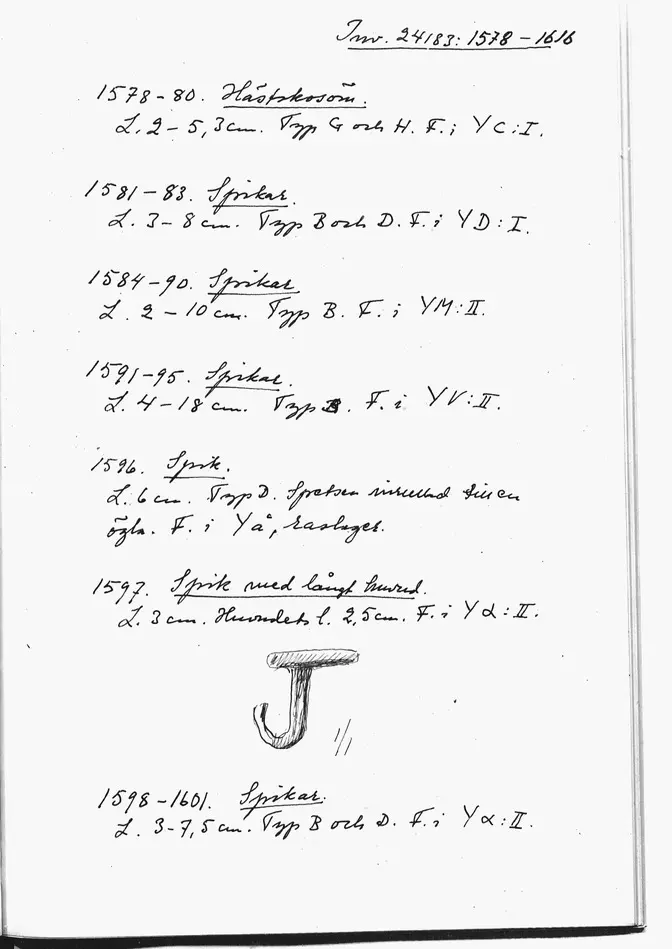 Inv. 24183: 1578 – 1616
1578 – 80. Hästskosöm.
L. 2 – 5,3 cm. Typ G och H. F. i YC: I.
1581 – 83. Spikar.
L. 3 – 8 cm. Typ B och D. F. i YD: I.
1584 – 90. Spikar
L. 2 – 10 cm. Typ B. F. i YM: II.
1591 – 95. Spikar.
L. 4 – 18 cm. Typ B. F. i YV: II.
1596. Spik.
L. 6 cm. Typ D. Spetsen inrullad till en
ögla. F. i YÅ, raslager.
1597. Spik med långt huvud.
L. 3 cm. Huvudets l. 2,5 cm. F. i Yα: II.
1/1
1598 – 1601. Spikar.
L. 3-7,5 cm. Typ B och D. F. i Yα: II.